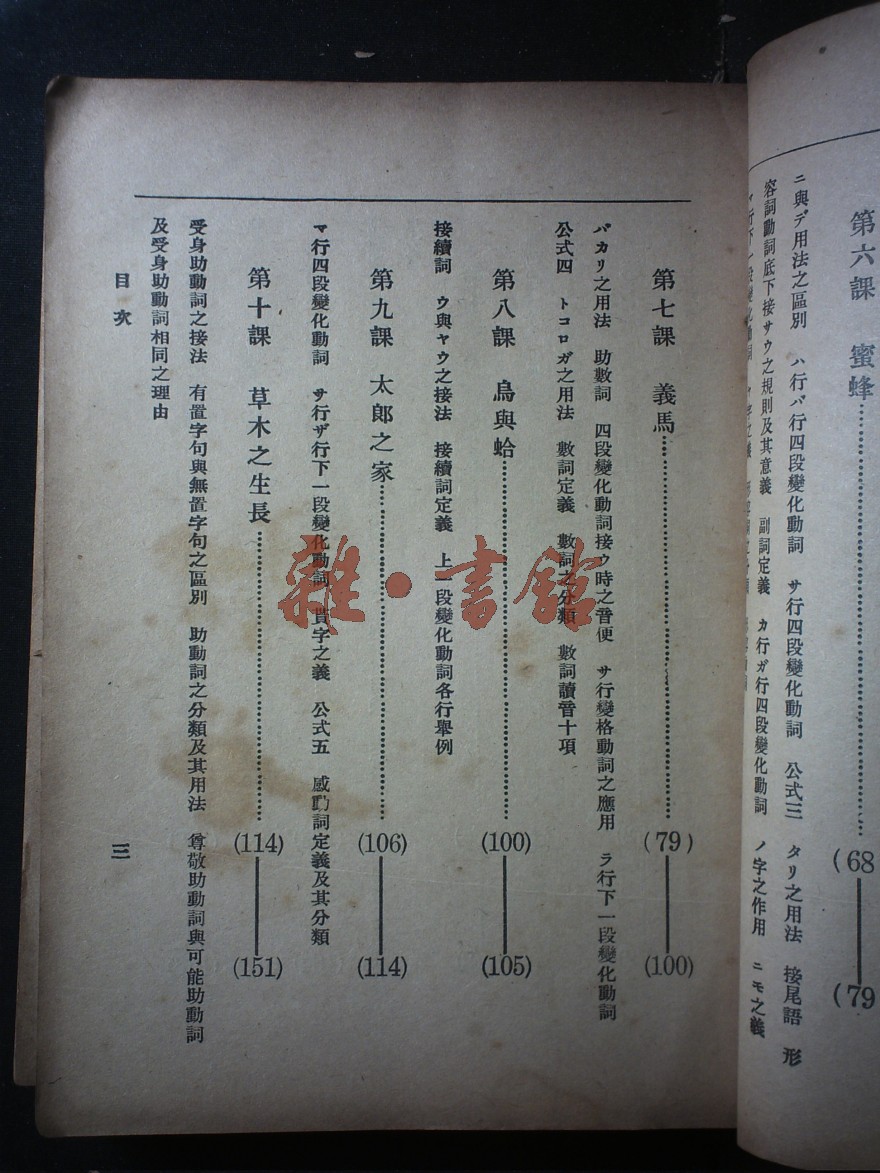 第六課 蜜蜂
(68
(79
ニ與デ用法之區別 ハ行バ行四段變化動詞 サ行四段變化動詞 公式三 タリ之用法 接尾語 形
容詞動詞底下接サウ之規則及其意義 副詞定義 カ行ガ行四段變化動詞 ノ字之作用 ニモ之義
第七課 義馬
(79)
(100)
バカリ之用法 助數詞 四段變化動詞接ウ時之音便 サ行變格動詞之應用 ラ行下一段變化動詞
公式四 トコロガ之用法 數詞定義 數詞之分類 數詞讀音十項
第八課 烏與蛤
(100)
(105)
接續詞 ウ與ヤウ之接法 接續詞定義 上一段變化動詞各行舉例
第九課 太郎之家
(106)
(114)
マ行四段變化動詞 サ行ザ行下一段變化動詞 貰字之義 公式五 感動詞定義及其分類
第十課 草木之生長
(114)
(151)
受身助動詞之接法 有置字句與無置字句之區別 助動詞之分類及其用法 尊敬助動詞與可能助動詞
及受身助動詞相同之理由
目次
三
雜·書館